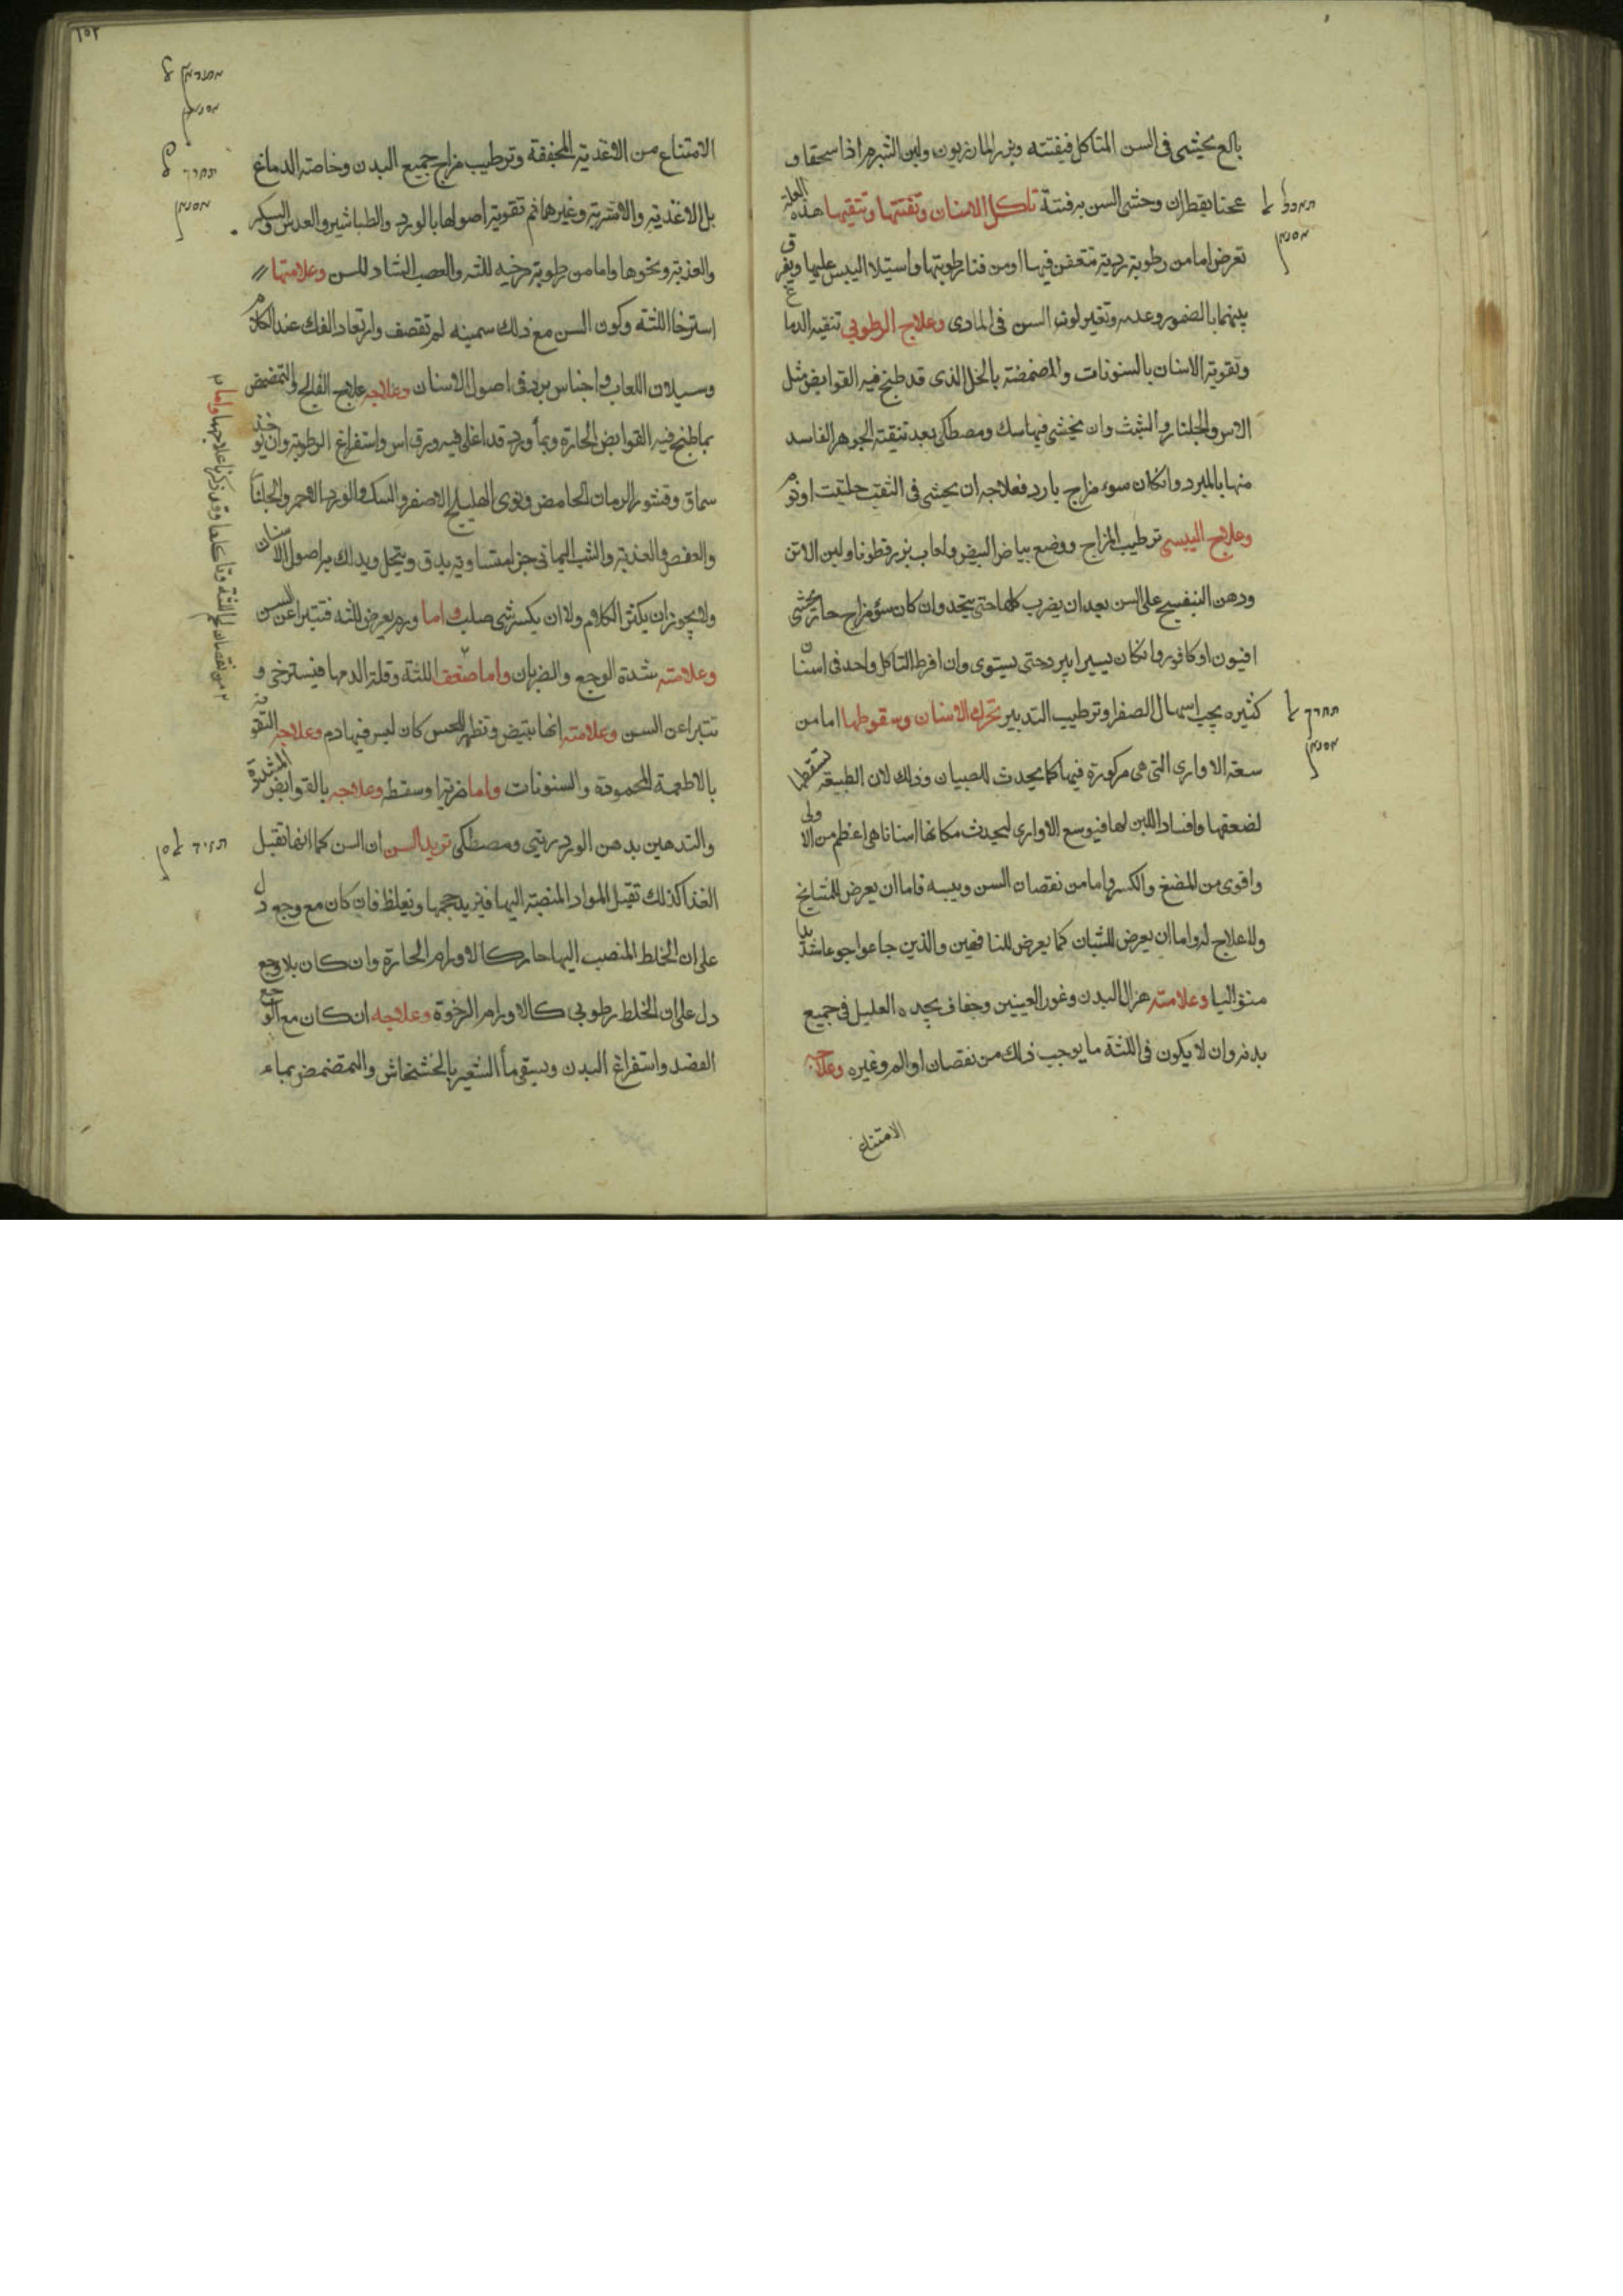 بالع يحشى فى السن المتاكل فيفتته وبزر المازريون ولبن الشبرم اذا سحقا و
عجنا بقطران وحشى السن به فتته تاكل الاسنان وتفتتها وتثقبها هذه العلة
تعرض اما من رطوبة ردية متعفن فيها او من فنا رطوبتها واستيلا اليبس عليها ويفرق
بينهما بالضمور وعدمه وتغير لون السن فى المادى وعلاج الرطوبي تنقيه الدماغ
وتقوية الاسنان بالسنونات والمضمضة بالخل الذى قد طبخ فيه القوابض مثل
الاس والجلنار والشبث وان يحشى فيها سك ومصطكى بعد تنقية الجوهر الفاسد
منها بالمبرد وانكان سوء مزاج بارد فعلاجه ان يحشى فى الثقب حلتيت او ثوم
وعلاج اليبسى ترطيب المزاج ووضع بياض البيض ولعاب بزر قطونا ولبن الاتن
ودهن البنفسج على السن بعد ان يضرب كلها حتى يتحد وان كان سؤ مزاج حار يحشى
افيون او كافور وانكان يسيرا يبرد حتى يستوى وان افرط التاكل واحد فى اسنان
كثيره يجب اسهال الصفرا وترطيب التدبير تحرك الاسنان وسقوطها اما من
سعة الاوارى التى هى مركوزة فيها كما يحدث للصبيان وذلك لان الطبيعة تسقطها
لضعفها وافساد اللبن لها فيوسع الاوارى ليحدث مكانها اسنانا هى اعظم من الاولى
واقوى من المضغ والكسر واما من نقصان السن ويبسه فاما ان يعرض للمشايخ
ولا علاج له واما ان يعرض للشبان كما يعرض للناقهين والذين جاعوا جوعا شديدا
متواليا وعلامته هزال البدن وغور العينين وجفاف يجده العليل فى جميع
بدنه وان لا يكون فى اللثة ما يوجب ذلك من نقصان او الم وغيره وعلاجه
الامتناع
١٥٢
الامتناع من الاغذية المجففة وترطيب مزاج جميع البدن وخاصة الدماغ
بالاغذية والاشربة وغيرها ثم تقوية اصولها بالورد والطباشير والعدس والسكر
والعذبة ونحوها واما من رطوبة مرخيه للثه والعصب الشاد للسن وعلامتها
استرخا اللثة وكون السن مع ذلك سمينه لم تقصف وارتعاد الفك عند الكلام
وسيلان اللعاب واجناس برد فى اصول الاسنان وعلاجه علاج الفالج والتمضمض
بما طبخ فيه القوابض الحارة وبمأ ورد قد اغلى فيه ورق اس واستفراغ الرطوبة وان يوخذ
سماق وقشور الرمان الحامض ونوى الهليلج الاصفر والسك والورد الاحمر والجلنا
والعفص والعذبة والشب اليمانى اجزا متساوية يدق وينخل ويدلك به اصول الاسنان
ولا يجوز ان يكثر الكلام ولا ان يكسر شى صلب واما ورم يعرض للثه فتتبرا عن السن
وعلامته شدة الوجع والضربان واما ضعف اللثة وقلة الدم بها فيسترخى و
تتبرا عن السن وعلامته انها تبيض وتظهر للحس كان ليس فيها دم وعلاجه التقوية
بالاطعمة المحمودة والسنونات واما ضربة او سقطه وعلاجه بالقوابض المشددة
والتدهين بدهن الورد زيتى ومصطكى تزيد السن ان السن كما انها تقبل
الغذا كذلك تقبل المواد المنصبة اليها فيزيد حجمها وتغلظ فان كان مع وجع دل
على ان الخلط المنصب اليها حار كالاورام الحارة وان كان بلا وجع
دل على ان الخلط رطوبي كالاورام الرخوة وعلاجه ان كان مع الوجع
الفصد واستفراغ البدن ويسقى مأ الشعير بالخشخاش والتمضمض بماء
واما من نقصان لحم اللثة وتاكلها وقد ذكرنا علاجها